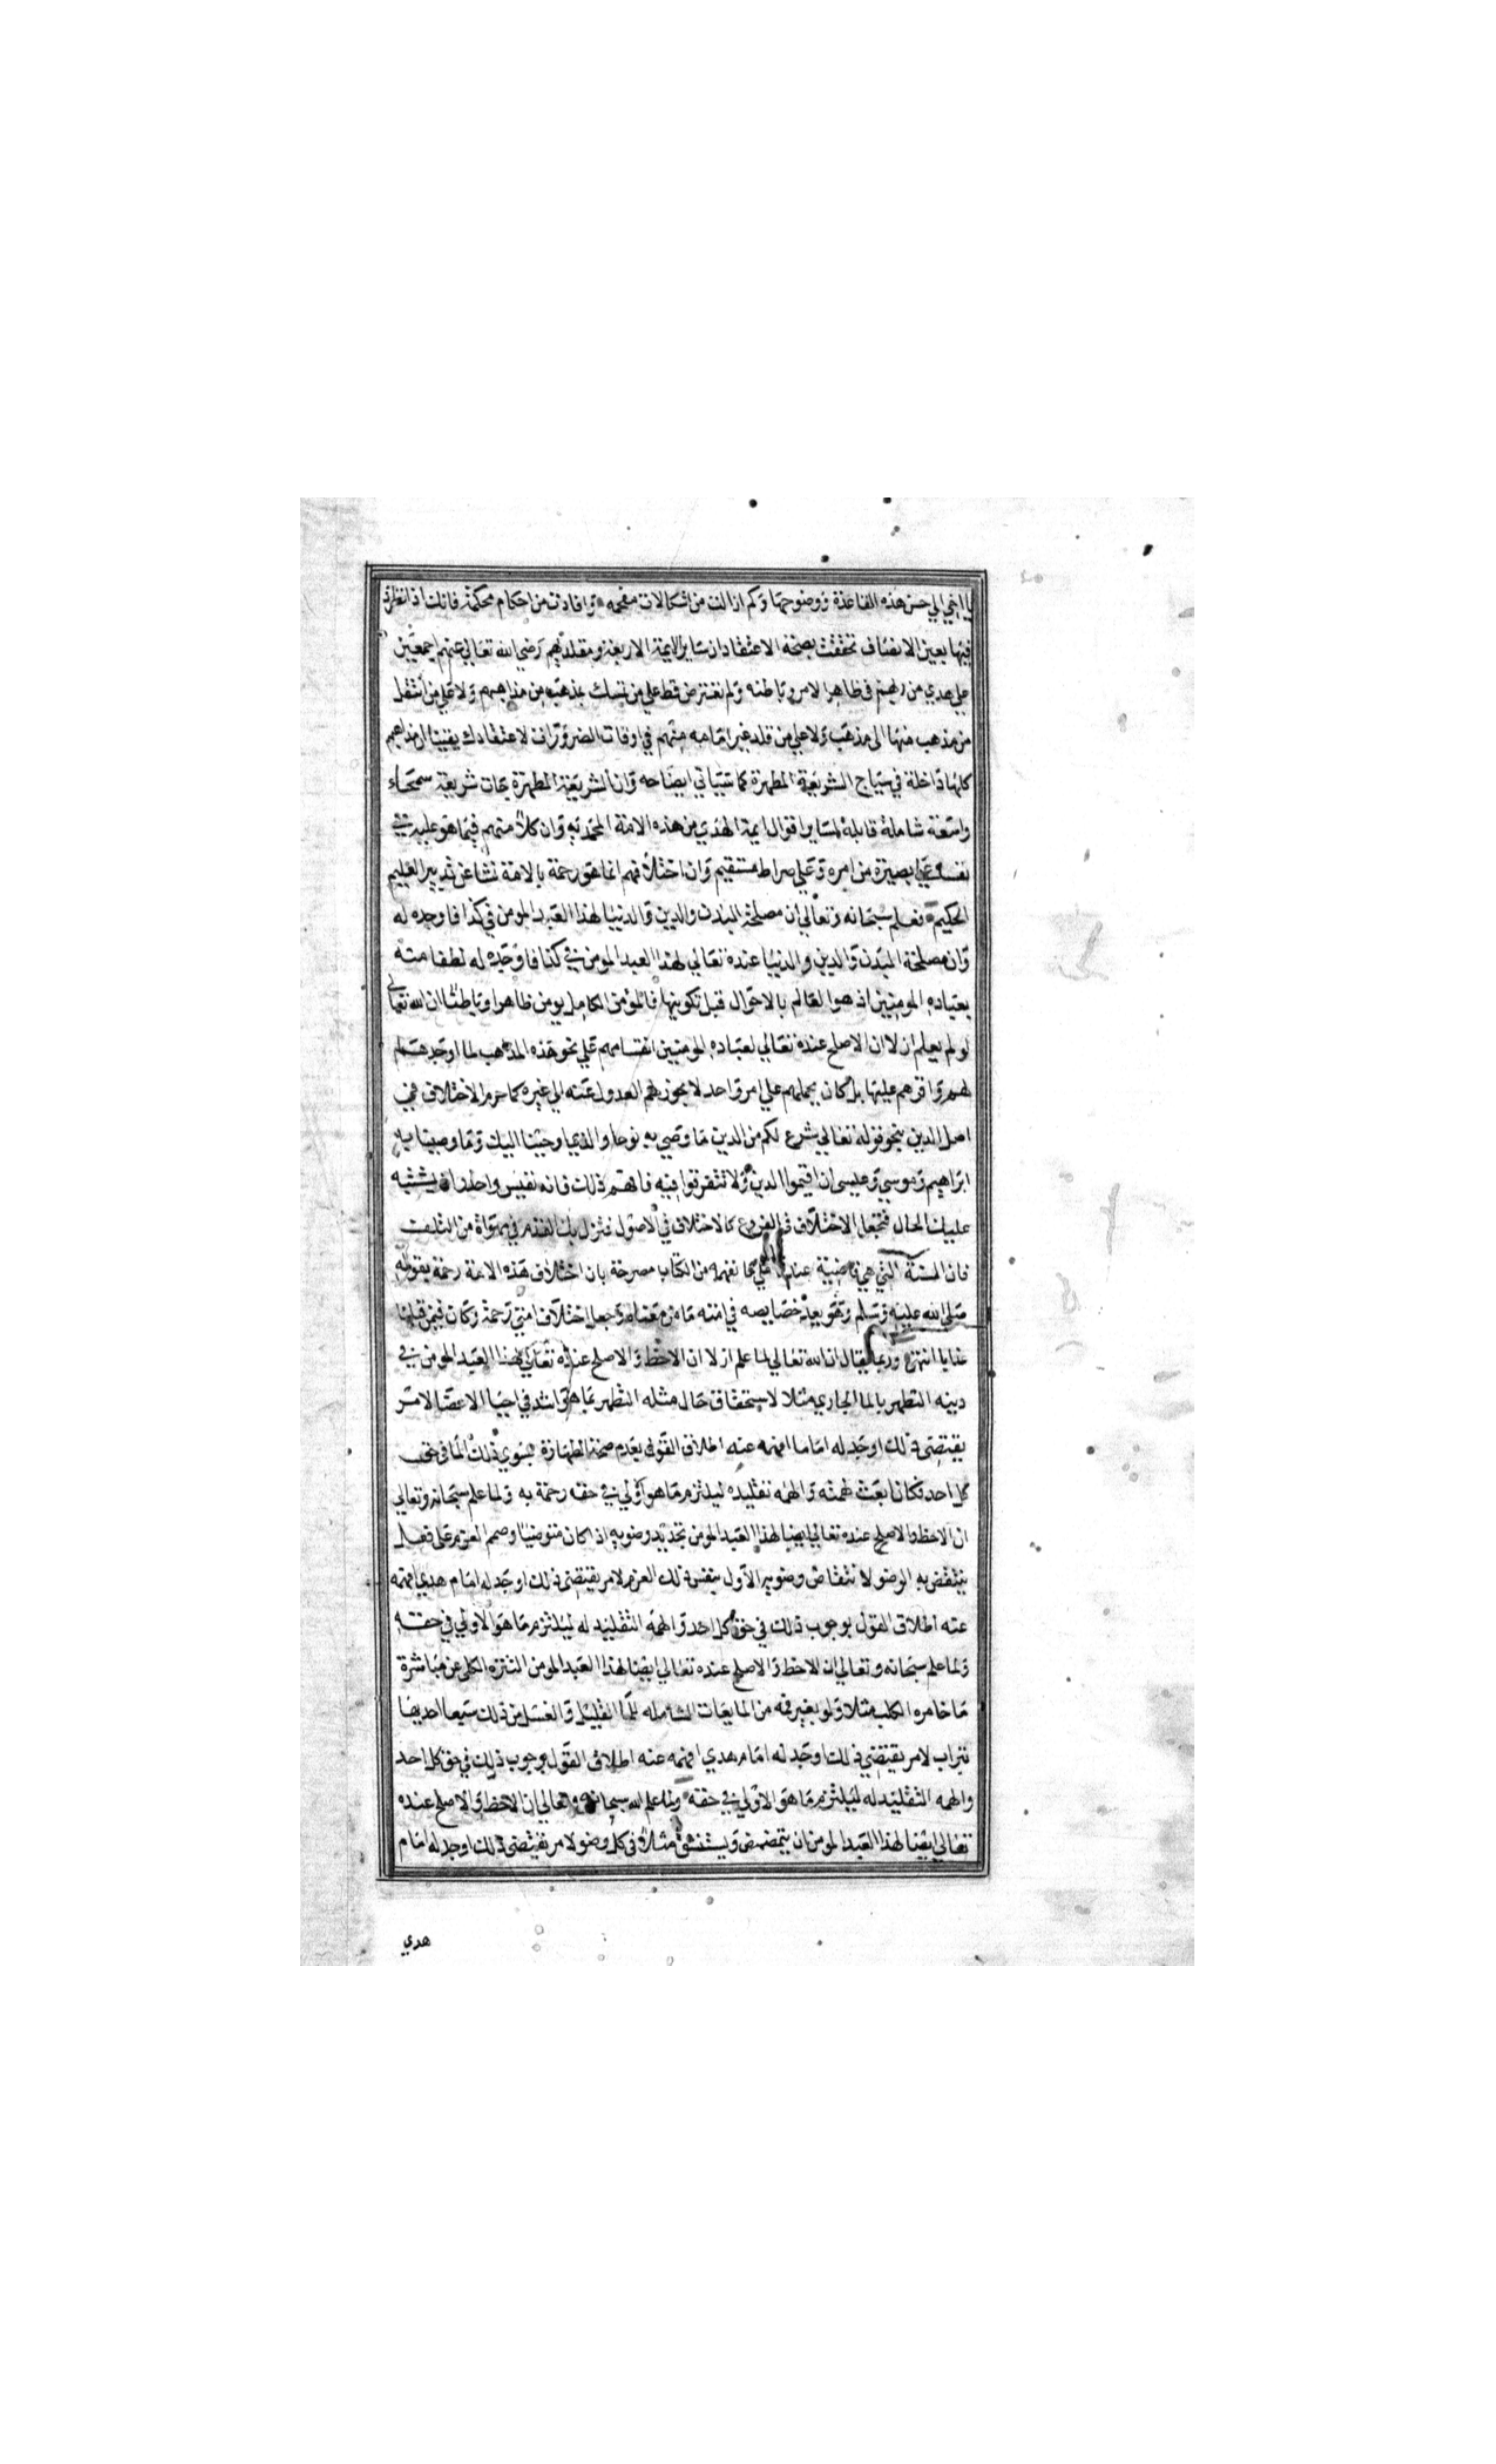 يا اخي الي حسن هذه القاعدة ووضوحها وكم ازالت من اشكالات معجمه وافادت من احكام محكمة فانك اذا نظرت
فيها بعين الانصاف تحققت بصحة الاعتقاد ان ساير الايمة الاربعة ومقلديهم رضي الله تعالي عنهم اجمعين
علي هدي من ربهم في ظاهر الامر وباطنه ولم تعترض قط علي من تمسك بمذهب من مذاهبهم ولا علي من انتقل
من مذهب منها الى مذهب ولا علي من قلد غير امامه منهم في اوقات الضرورات لاعتقادك يقينا ان مذاهبهم
كلها داخلة في سياج الشريعة المطهرة كما سياتي ايضاحه وان الشريعة المطهرة جات شريعة سمحاء
واسعة شاملة قابلة لساير اقوال ايمة الهدي من هذه الامة المحمدية وان كلا منهم فيما هو عليه في
نفسه علي بصيرة من امره وعلي صراط مستقيم وان اختلافهم انما هو رحمة بالامة نشا عن تدبير العليم
الحكيم فعلم سبحانه وتعالي ان مصلحة البدن والدين والدنيا لهذا العبد المومن في كذا فاوجده له
وان مصلحة البدن والدين والدنيا عنده تعالي لهذا العبد المومن في كذا فاوجده له لطفا منه
بعباده المومنين اذ هو العالم بالاحوال قبل تكوينها فالمؤمن الكامل يومن ظاهرا وباطنا ان الله تعالى
لو لم يعلم ازلا ان الاصلح عنده تعالي لعباده المومنين انقسامهم علي نحو هذه المذاهب لما اوجدها
لهم واقرهم عليها بل كان يحملهم علي امر واحد لا يجوز لهم العدول عنه الي غيره كما حرم الاختلاف في
اصل الدين بنحو قوله تعالي شرع لكم من الدين ما وصي به نوحا والذي اوحينا اليك وما وصينا به
ابراهيم وموسي وعيسى ان اقيموا الدين ولا تتفرقوا فيه فافهم ذلك فانه نفيس واحذر ان يشتبه
عليك الحال فتجعل الاختلاف في الفروع كالاختلاف في الاصول فتزل بك القدم في مهواة من التلف
فان السنة التي هي قاضية عندنا علي ما نفهمه من الكتاب مصرحة بان اختلاف هذه الامة رحمة بقوله
صلي الله عليه وسلم وهو يعد خصايصه في امته ما من معناه وجعل اختلاف امتي رحمة وكان فيمن قبلنا
عذابا انتهى وربما يقال ان الله تعالي لما علم ازلا ان الاحظ والاصلح عنده تعالي لهذا العبد المومن في
دينه التطهر بالما الجاري مثلا لاستحقاق حال مثله التطهر بما هو اشد في احيا الاعضا لامر
يقتضي ذلك اوجد له اماما افهمه عنه اطلاق القول بعدم صحة الطهارة بسوي ذلك الما في حق
كل احد فكان انعث لهمته والهمه تقليده ليلتزم ما هو اولي في حقه رحمة به ولما علم سبحانه وتعالي
ان الاحظ والاصلح عنده تعالي ايضا لهذا العبد المومن تجديد وضويه اذا كان متوضيا وصمم العزم على فعل
ينتقض به الوضو لانتقاض وضويه الاول بنفس ذلك العزم لامر يقتضي ذلك اوجد له امام هدي افهمه
عنه اطلاق القول بوجوب ذلك في حق كل احد والهمه التقليد له ليلتزم ما هو الاولي في حقه
ولما علم سبحانه وتعالي ان الاحظ والاصلح عنده تعالي ايضا لهذا العبد المومن التنزه الكلى عن مباشرة
ما خامره الكلب مثلا ولو بغير فمه من المايعات الشامله للما القليل والغسل من ذلك سبعا احديها
بتراب لامر يقتضي ذلك اوجد له امام هدي افهمه عنه اطلاق القول بوجوب ذلك في حق كل احد
والهمه التقليد له ليلتزم ما هو الاولي في حقه ولما علم الله سبحانه وتعالي ان الاحظ والاصلح عنده
تعالي ايضا لهذا العبد المومن ان يتمضمض ويستنشق مثلا في كل وضو لامر يقتضي ذلك اوجد له امام
هدي